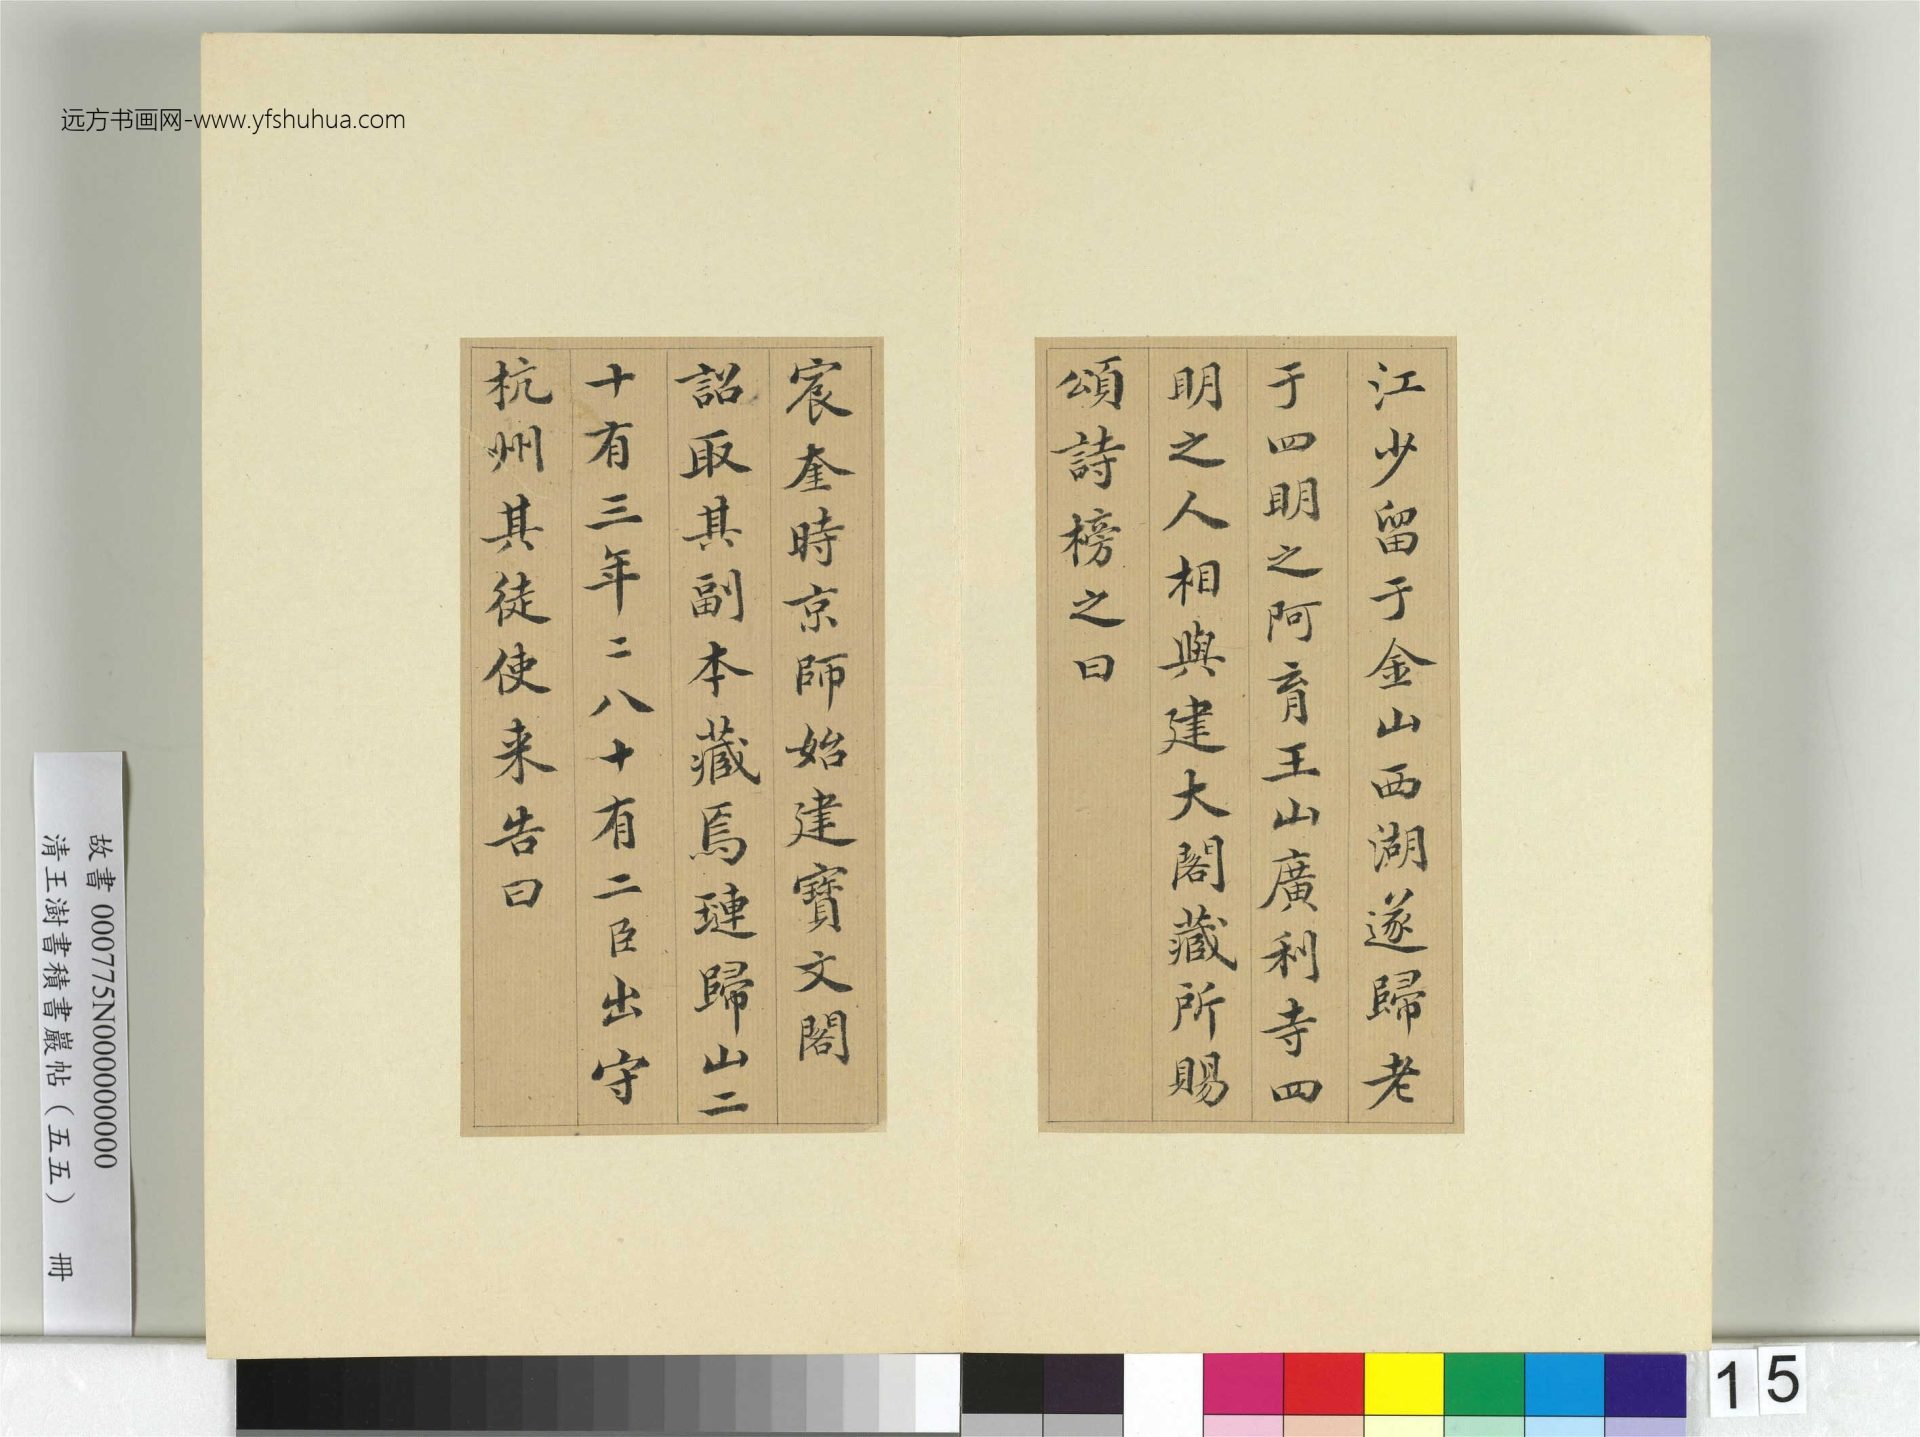 远方书画网-www.yfshuhua.com
江少留于金山西湖遂歸老
于四明之阿育王山廣利寺四
明之人相與建大閣藏所賜
頌詩榜之曰
宸奎時京師始建寶文閣
詔取其副本藏焉璉歸山二
十有三年二八十有二臣出守
杭州其徒使来告曰
故書 000775N000000000
清王澍書積書巖帖(五五) 冊
15